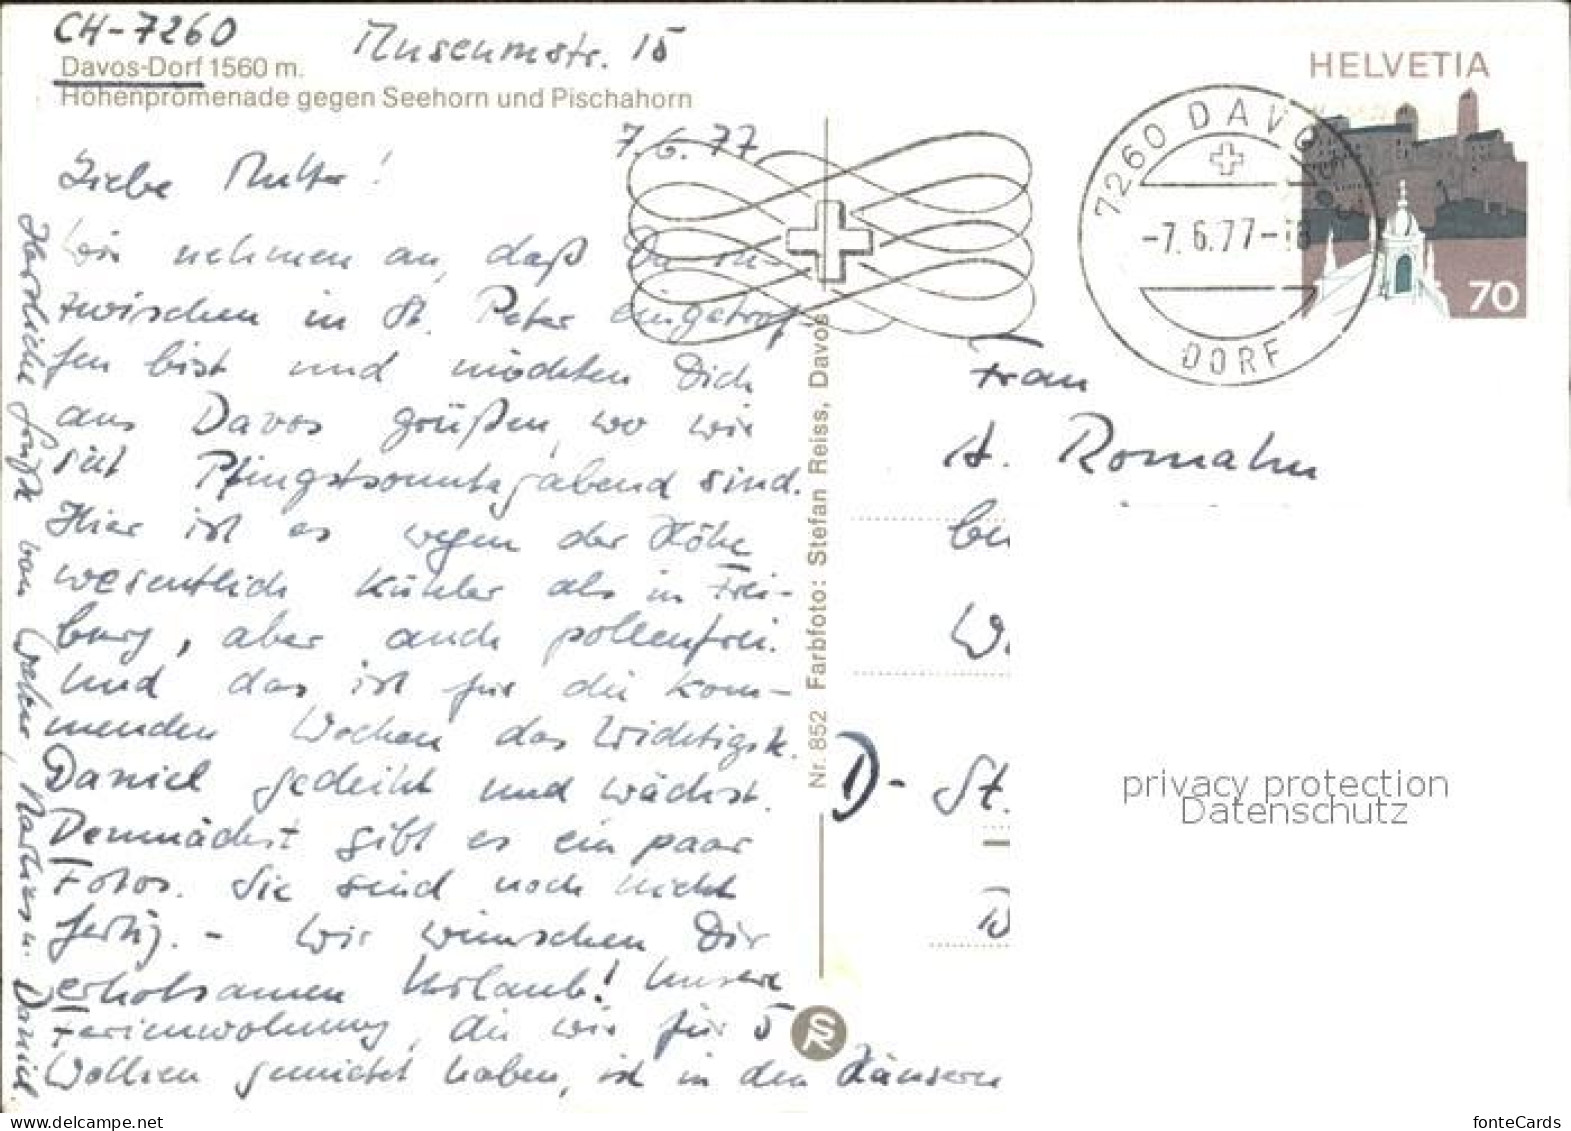 CH-7260 Museumstr. 15
Davos-Dorf 1560 m.
Höhenpromenade gegen Seehorn und Pischahorn
7.6.77
Liebe Mutter!
Wir nehmen an, daß Du in-
zwischen in St. Peter eingetrof
fen bist und möchten Dich
aus Davos grüßen, wo wir
seit Pfingstsonntagabend sind.
Hier ist es wegen der Höhe
wesentlich kühler als in Frei-
burg, aber auch pollenfrei.
Und das ist für die kom-
menden Wochen das Wichtigste.
Daniel gedeiht und wächst.
Demnächst gibt es ein paar
Fotos. Sie sind noch nicht
fertig. - Wir wünschen Dir
erholsamen Urlaub! Unsere
Ferienwohnung, die wir für 5
Wochen gemietet haben, ist in den Häusern
Herzliche Grüße von u. Daniel.
Nr. 852 Farbfoto: Stefan Reiss, Davos
HELVETIA
70
7260 DAVOS
-7.6.77-18
DORF
Frau
A. Romahn
bei
W.
D- St.
privacy protection
Datenschutz
www.delcampe.net
fonteCards